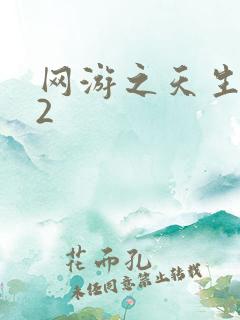 网游之天生
2
花而孔
未经同意禁止转载